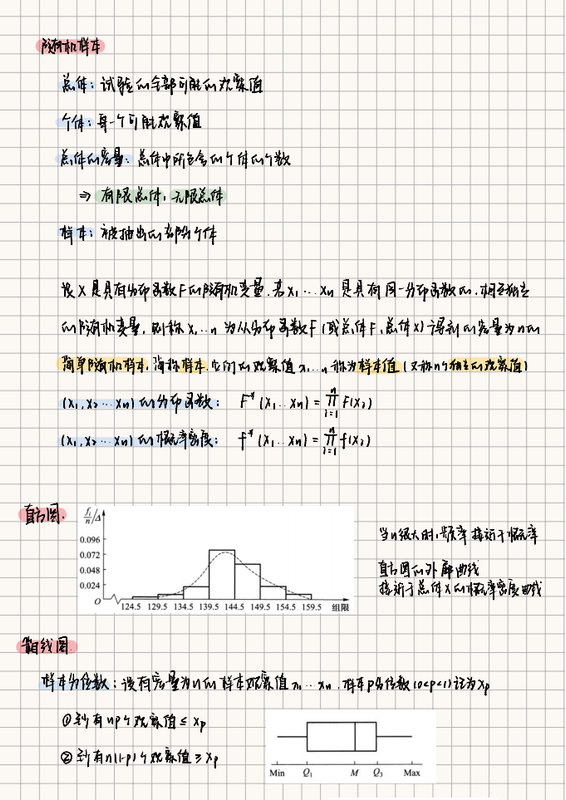 随机样本
总体: 试验的全部可能的观察值
个体: 每一个可能观察值
总体的容量: 总体中所包含的个体的个数
⇒ 有限总体, 无限总体
样本: 被抽出的部分个体
设 X 是具有分布函数 F 的随机变量, 若 X₁…Xn 是具有同一分布函数的, 相互独立
的随机变量, 则称 X₁…n 为从分布函数 F (或总体 F, 总体 X) 得到的容量为 n 的
简单随机样本, 简称样本, 它们的观察值 x₁…n 称为样本值 (又称 n 个独立的观察值)
(X₁, X₂…Xn) 的分布函数: F* (X₁…Xn) = ∏ᵢ₌₁ⁿ F(Xᵢ)
(X₁, X₂…Xn) 的概率密度: f* (X₁…Xn) = ∏ᵢ₌₁ⁿ f(Xᵢ)
直方图.
fᵢ/n /Δ
0.096
0.072
0.048
0.024
O
124.5 129.5 134.5 139.5 144.5 149.5 154.5 159.5 组限
当 n 很大时, 频率接近于概率
直方图的外廓曲线
接近于总体 X 的概率密度曲线
箱线图.
样本分位数: 设有容量为 n 的样本观察值 x₁…xn, 样本 p 分位数 (0<p<1) 记为 xp
① 至少有 np 个观察值 ≤ xp
② 至少有 n(1-p) 个观察值 ≥ xp
Min Q₁ M Q₃ Max